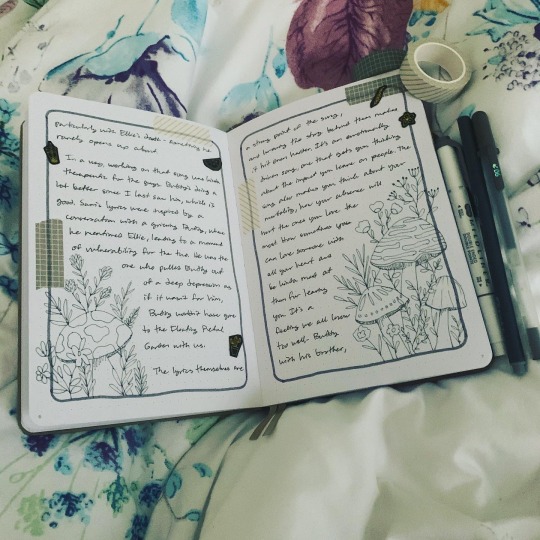 particularly with Ellie's death - something he
rarely opens up about.
In a way, working on that song was kinda
therapeutic for the guys. Buttby's doing a
lot better since I last saw him, which is
good. Sam's lyrics were inspired by a
conversation with a grieving Buttby, where
he mentioned Ellie, leading to a moment
of vulnerability for the two. He was the
one who pulled Buttby out
of a deep depression as
if it wasn't for him,
Buttby wouldn't have gone
to the Floating Pedal
Garden with us.
The lyrics themselves are
a strong point of the song,
and knowing the story behind them makes
it hit even harder. It's an emotionally
driven song, one that gets you thinking
about the impact you leave on people. The
song also makes you think about your
mortality, how your absence will
hurt the ones you love the
most. How somehow you
can love someone with
all your heart and
be kinda mad at
them for leaving
you. It's a
feeling we all know
too well. Buttby,
with his brother,